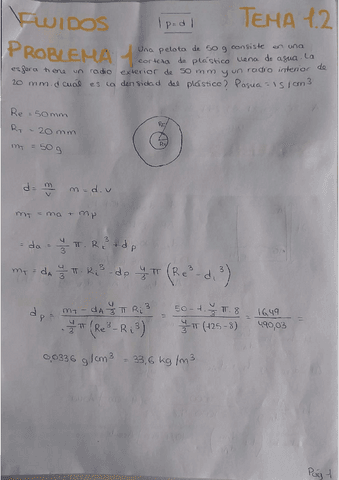 FLUIDOS
|ρ=d|
TEMA 1.2
PROBLEMA 1
Una pelota de 50 g consiste en una
corteza de plástico llena de agua. La
esfera tiene un radio exterior de 50 mm y un radio interior de
20 mm ¿cuál es la densidad del plástico? ρagua = 1 g/cm³
Re = 50 mm
Ri = 20 mm
mT = 50 g
Re
Ri
d = m/v m = d·v
mT = ma + mp
= da = 4/3 π · Ri³ + dp
mT = dA 4/3 π · Ri³ - dp 4/3 π (Re³ - di³)
dp = (mT - dA 4/3 π Ri³)/(4/3 π (Re³ - Ri³)) = (50 - 1 · 4/3 π · 8)/(4/3 π (125-8)) = 16,49/490,03 =
0,0336 g/cm³ = 33,6 kg/m³
Pág-1